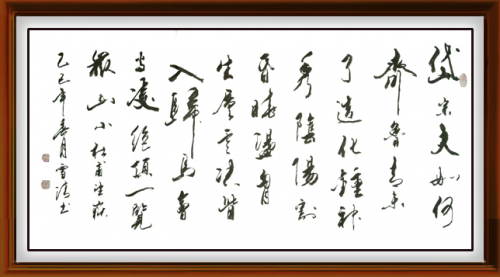 岱宗夫如何
齊魯青未
了造化鍾神
秀陰陽割
昏曉盪胸
生層雲決眥
入歸鳥會
當凌絕頂一覽
衆山小杜甫望嶽
乙巳年春月雪书